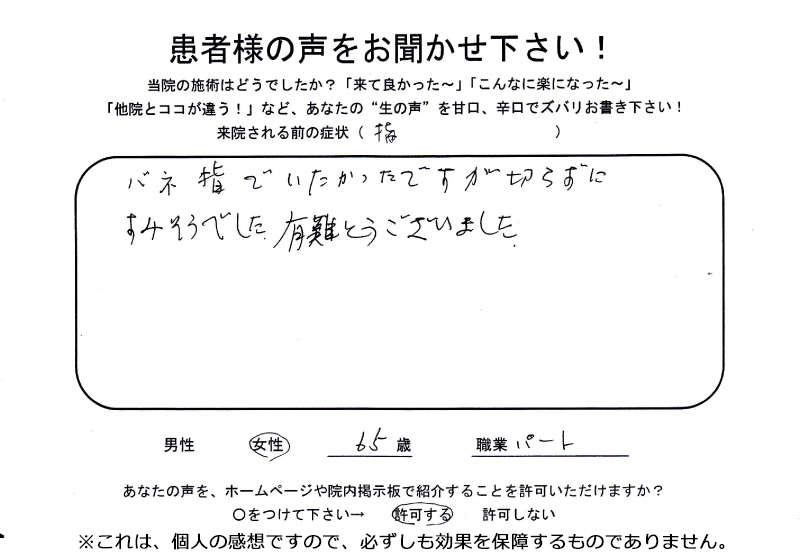 患者様の声をお聞かせ下さい！
当院の施術はどうでしたか？「来て良かった～」「こんなに楽になった～」
「他院とココが違う！」など、あなたの“生の声”を甘口、辛口でズバリお書き下さい！
来院される前の症状（ 指 ）
バネ指でいたかったですが切らずに
すみそうでした.有難とうございました.
男性 女性 65歳 職業 パート
あなたの声を、ホームページや院内掲示板で紹介することを許可いただけますか？
〇をつけて下さい→ 許可する 許可しない
※これは、個人の感想ですので、必ずしも効果を保障するものでありません。